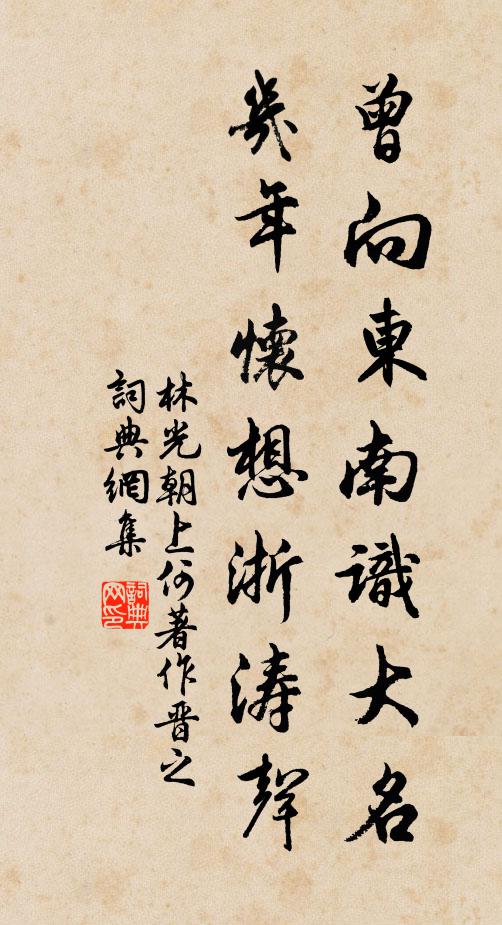 曾向東南識大名
幾年懷想浙濤聲
林光朝上何著作晋之
詞典網集
詞典网印